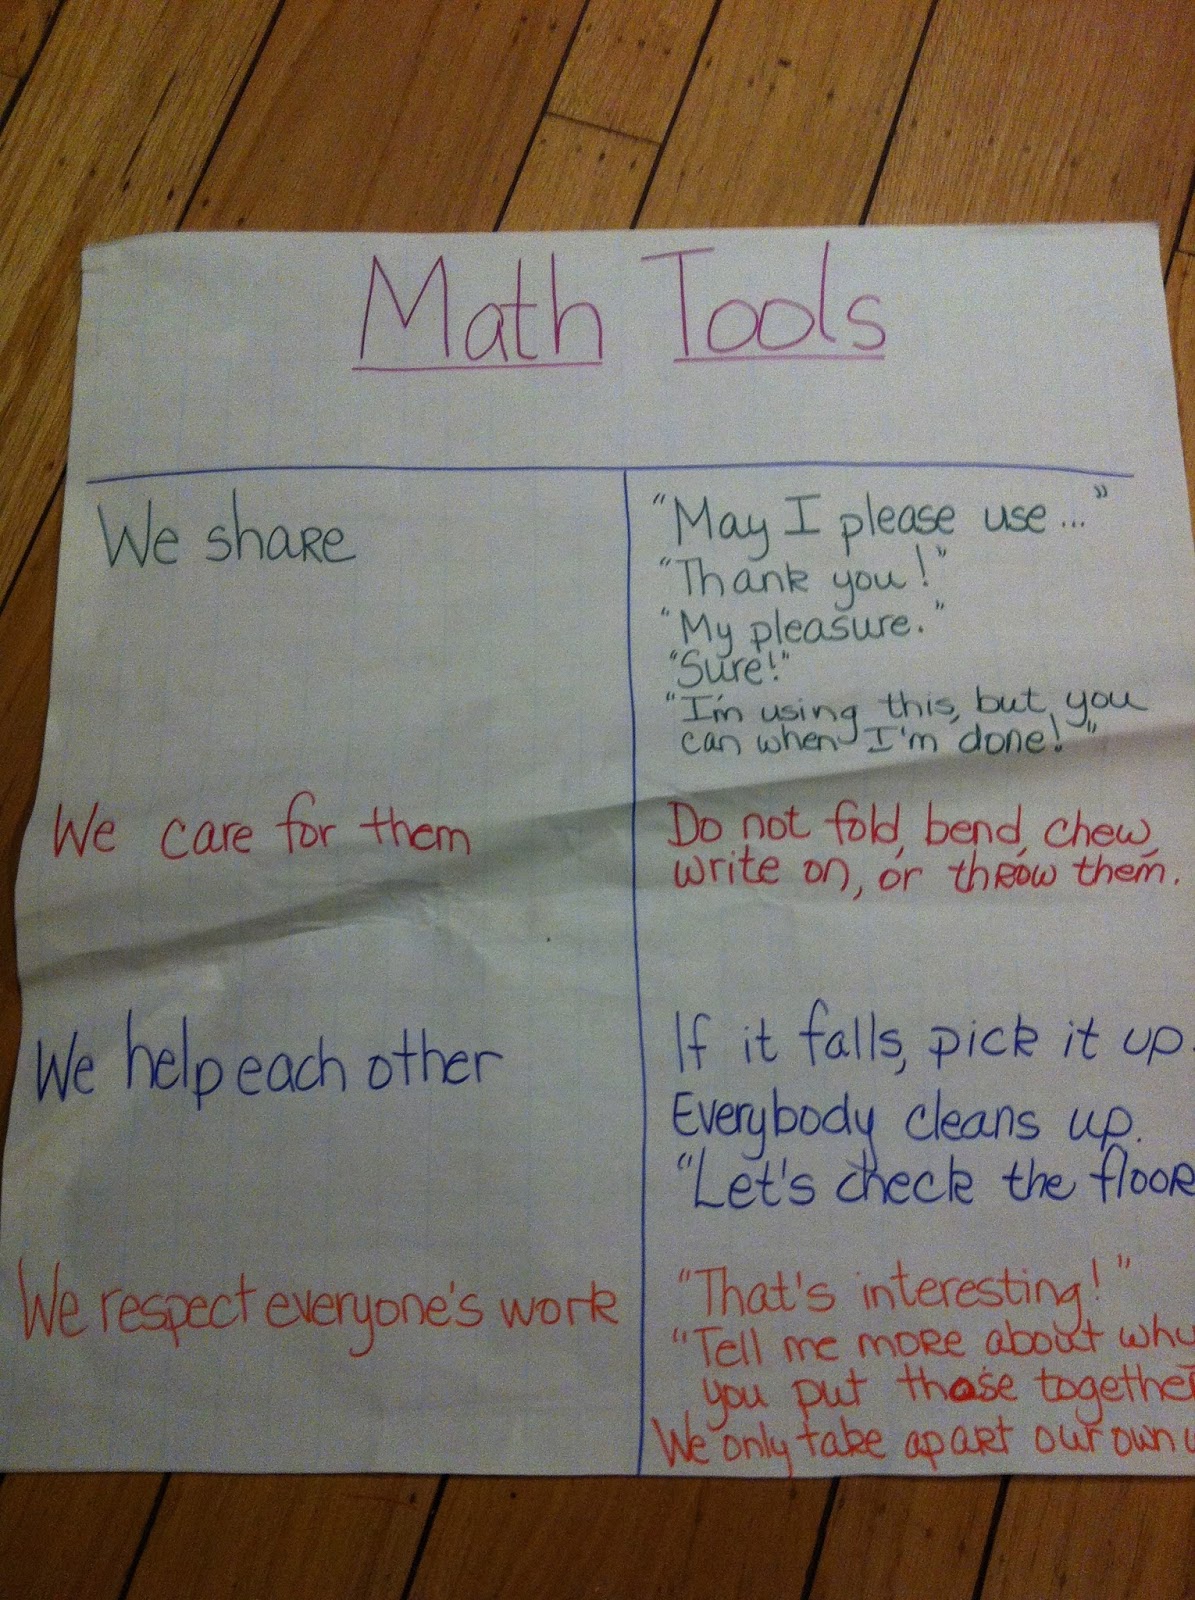 Math Tools
We share
"May I please use ..."
"Thank you!"
"My pleasure."
"Sure!"
"I'm using this, but you
can when I'm done!"
We care for them
Do not fold, bend, chew,
write on, or throw them.
We help each other
If it falls, pick it up.
Everybody cleans up.
"Let's check the floor
We respect everyone's work
"That's interesting!"
"Tell me more about why
you put those together
We only take apart our own